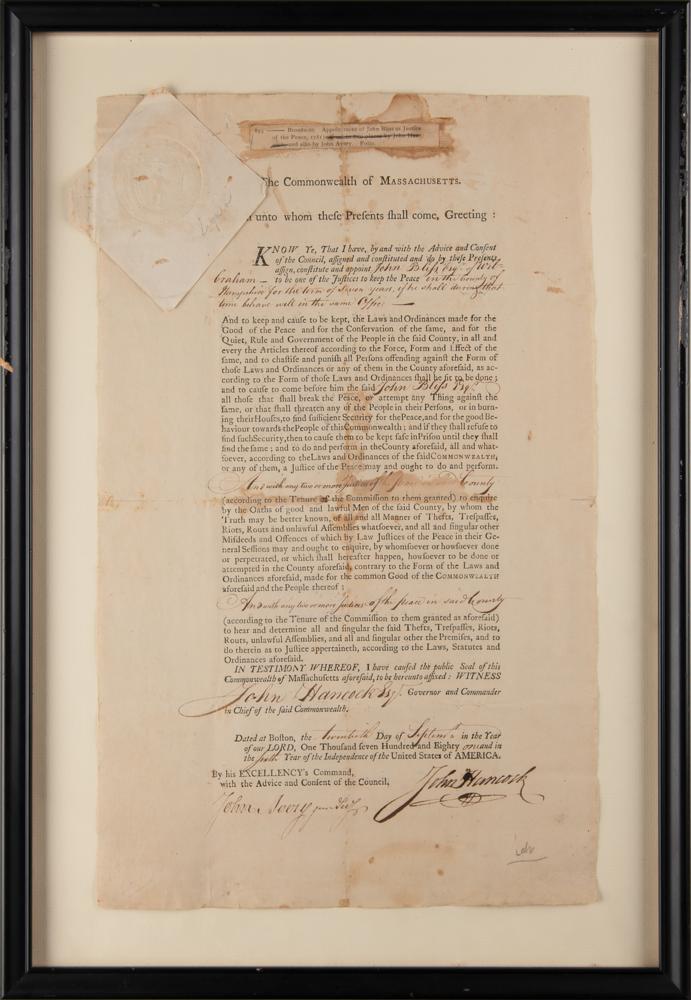 855 —— Broadside. Appointment of John Bliss as Justice
of the Peace, 1781
and also by John Avery. Folio.
The Commonwealth of MASSACHUSETTS.
unto whom theſe Preſents ſhall come, Greeting :
KNOW Ye, That I have, by and with the Advice and Conſent
of the Council, aſſigned and conſtituted and do by theſe Preſents,
aſſign, conſtitute and appoint John Bliſs Esqr. of Wil-
braham — to be one of the Juſtices to keep the Peace in the County of
Hampshire for the term of Seven years, if he shall during that
time behave well in the same Office —
And to keep and cauſe to be kept, the Laws and Ordinances made for the
Good of the Peace and for the Conſervation of the ſame, and for the
Quiet, Rule and Government of the People in the ſaid County, in all and
every the Articles thereof according to the Force, Form and Effect of the
ſame, and to chaſtiſe and puniſh all Perſons offending againſt the Form of
thoſe Laws and Ordinances or any of them in the County aforeſaid, as ac-
cording to the Form of thoſe Laws and Ordinances ſhall be fit to be done ;
and to cauſe to come before him the ſaid John Bliſs Esqr.
all thoſe that ſhall break the Peace, or attempt any Thing againſt the
ſame, or that ſhall threaten any of the People in their Perſons, or in burn-
ing their Houſes, to find ſufficient Security for the Peace, and for the good Be-
haviour towards the People of this Commonwealth ; and if they ſhall refuſe to
find ſuch Security, then to cauſe them to be kept ſafe in Priſon until they ſhall
find the ſame ; and to do and perform in the County aforeſaid, all and what-
ſoever, according to the Laws and Ordinances of the ſaid COMMONWEALTH,
or any of them, a Juſtice of the Peace may and ought to do and perform.
And with any two or more Justices of County
(according to the Tenure of the Commiſſion to them granted) to enquire
by the Oaths of good and lawful Men of the ſaid County, by whom the
Truth may be better known, of all and all Manner of Thefts, Treſpaſſes,
Riots, Routs and unlawful Aſſemblies whatſoever, and all and ſingular other
Miſdeeds and Offences of which by Law Juſtices of the Peace in their Ge-
neral Seſſions may and ought to enquire, by whomſoever or howſoever done
or perpetrated, or which ſhall hereafter happen, howſoever to be done or
attempted in the County aforeſaid, contrary to the Form of the Laws and
Ordinances aforeſaid, made for the common Good of the COMMONWEALTH
aforeſaid and the People thereof :
And with any two or more Justices of the peace in said County
(according to the Tenure of the Commiſſion to them granted as aforeſaid)
to hear and determine all and ſingular the ſaid Thefts, Treſpaſſes, Riots,
Routs, unlawful Aſſemblies, and all and ſingular other the Premiſes, and to
do therein as to Juſtice appertaineth, according to the Laws, Statutes and
Ordinances aforeſaid.
IN TESTIMONY WHEREOF, I have cauſed the public Seal of this
Commonwealth of Maſſachuſetts aforeſaid, to be hereunto affixed : WITNESS
John Hancock Esqr. Governor and Commander
in Chief of the ſaid Commonwealth.
Dated at Boſton, the twentieth Day of Septemr. in the Year
of our LORD, One Thouſand ſeven Hundred and Eighty one and in
the sixth Year of the Independence of the United States of AMERICA.
By his EXCELLENCY's Command,
with the Advice and Conſent of the Council,
John Hancock
John Avery